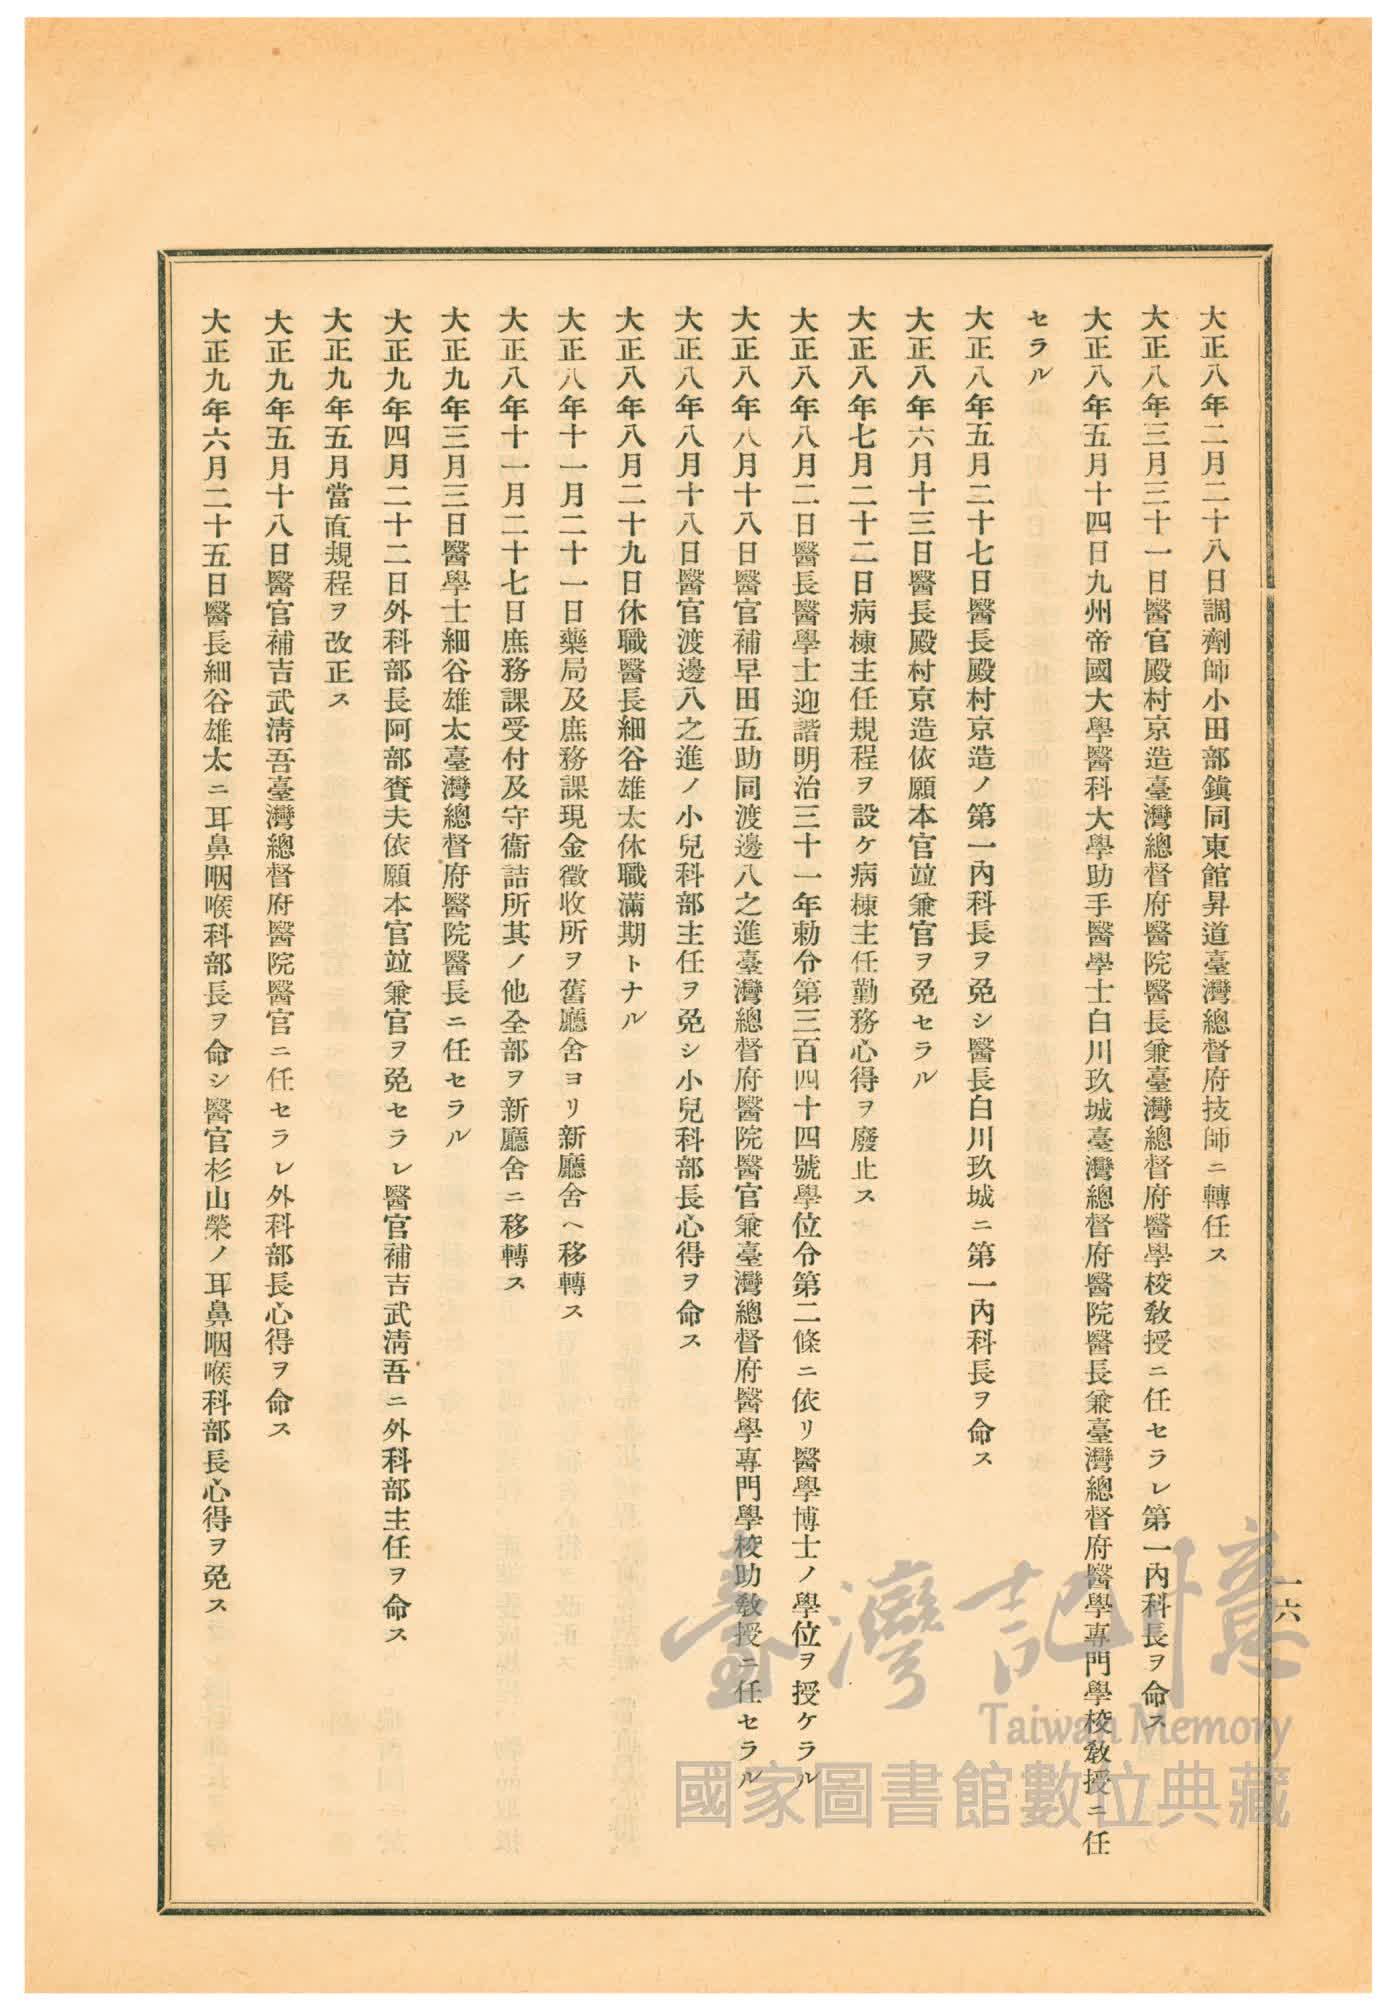 大正八年二月二十八日調劑師小田部鎭同東館昇道臺灣總督府技師ニ轉任ス
大正八年三月三十一日醫官殿村京造臺灣總督府醫院醫長兼臺灣總督府醫學校敎授ニ任セラレ第一內科長ヲ命ス
大正八年五月十四日九州帝國大學醫科大學助手醫學士白川玖城臺灣總督府醫院醫長兼臺灣總督府醫學專門學校敎授ニ任
セラル
大正八年五月二十七日醫長殿村京造ノ第一內科長ヲ免シ醫長白川玖城ニ第一內科長ヲ命ス
大正八年六月十三日醫長殿村京造依願本官竝兼官ヲ免セラル
大正八年七月二十二日病棟主任規程ヲ設ケ病棟主任勤務心得ヲ廢止ス
大正八年八月二日醫長醫學士迎諧明治三十一年勅令第三百四十四號學位令第二條ニ依リ醫學博士ノ學位ヲ授ケラル
大正八年八月十八日醫官補早田五助同渡邊八之進臺灣總督府醫院醫官兼臺灣總督府醫學專門學校助敎授ニ任セラル
大正八年八月十八日醫官渡邊八之進ノ小兒科部主任ヲ免シ小兒科部長心得ヲ命ス
大正八年八月二十九日休職醫長細谷雄太休職滿期トナル
大正八年十一月二十一日藥局及庶務課現金徵收所ヲ舊廳舍ヨリ新廳舍ヘ移轉ス
大正八年十一月二十七日庶務課受付及守衞詰所其ノ他全部ヲ新廳舍ニ移轉ス
大正九年三月三日醫學士細谷雄太臺灣總督府醫院醫長ニ任セラル
大正九年四月二十二日外科部長阿部賚夫依願本官竝兼官ヲ免セラレ醫官補吉武淸吾ニ外科部主任ヲ命ス
大正九年五月當直規程ヲ改正ス
大正九年五月十八日醫官補吉武淸吾臺灣總督府醫院醫官ニ任セラレ外科部長心得ヲ命ス
大正九年六月二十五日醫長細谷雄太ニ耳鼻咽喉科部長ヲ命シ醫官杉山榮ノ耳鼻咽喉科部長心得ヲ免ス
一六
臺灣記憶
Taiwan Memory
國家圖書館數位典藏